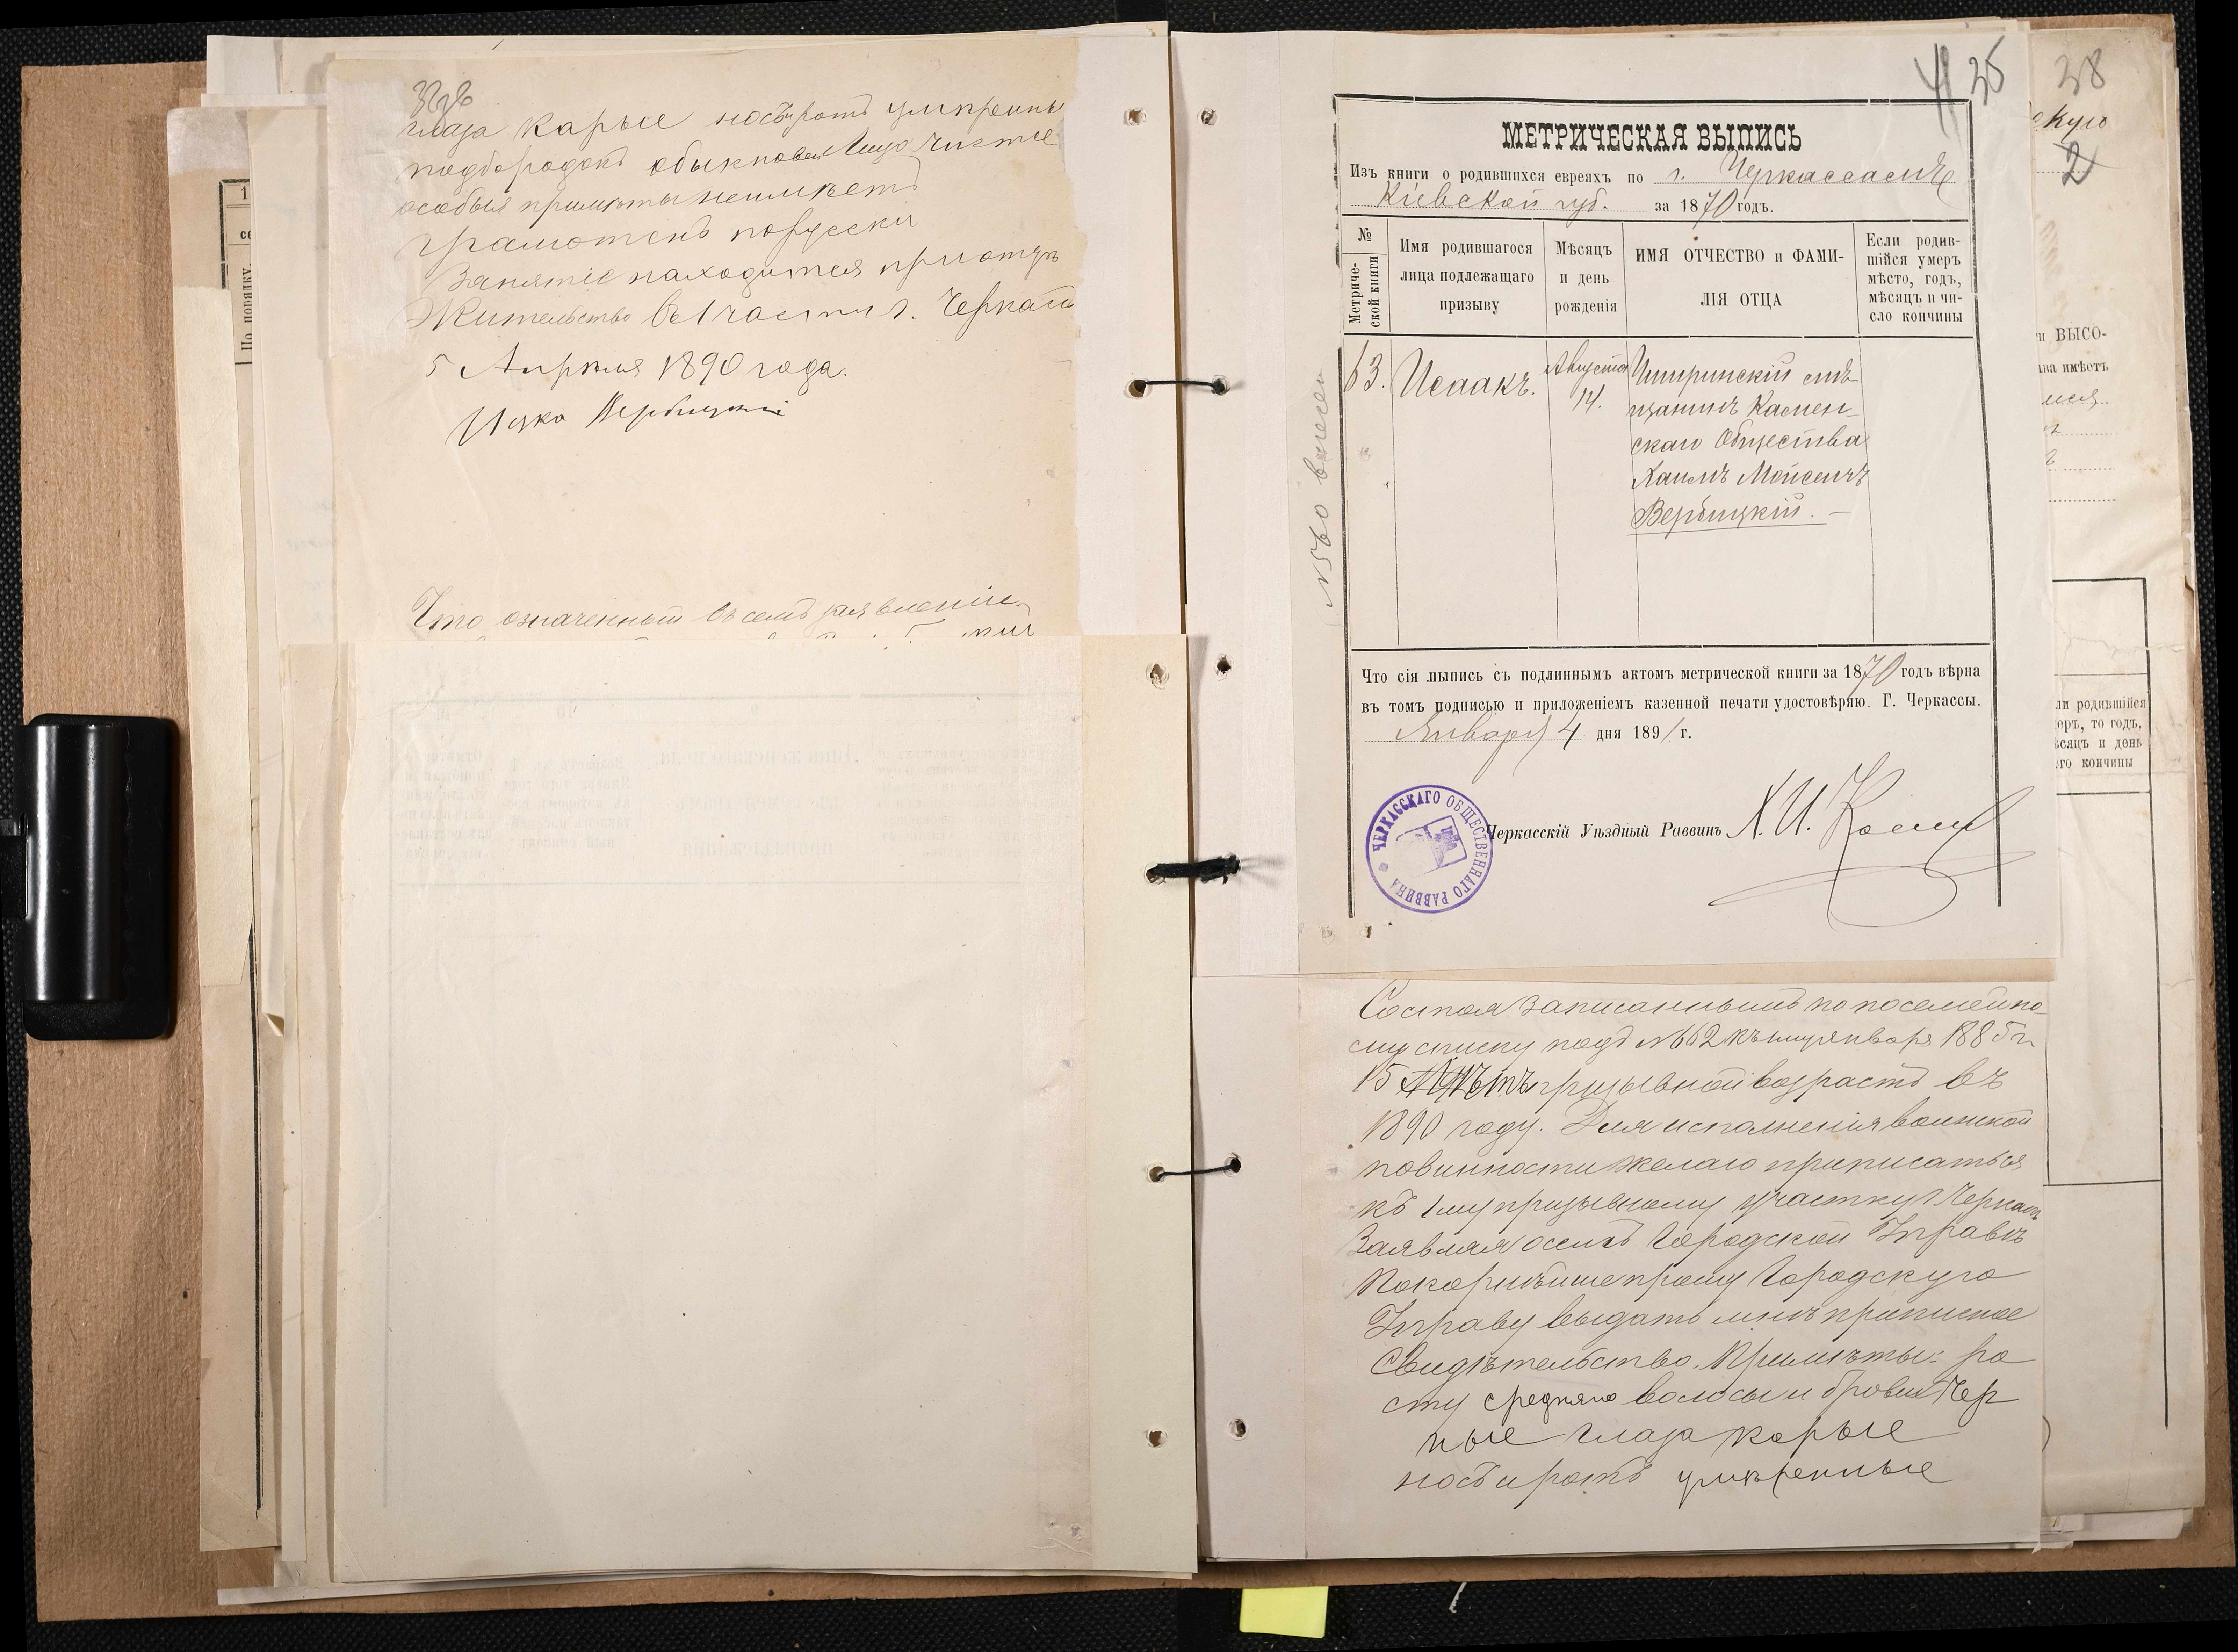 глаза карые носъ ротъ умѣренны
подбородокъ обыкновен Лицо чистые
особыя примѣты неимѣетъ
грамотенъ порусски
Занятіе находится приотцѣ
Жительство въ 1 части г. Черкасъ
5 Апрѣля 1890 года.
Ицко Вербицкій
Что означенный въ семъ заявленіи
41 25
МЕТРИЧЕСКАЯ ВЫПИСЬ
Изъ книги о родившихся евреяхъ по г. Черкассамъ
Кіевской губ. за 1870 годъ.
№ Метриче-ской книги
Имя родившагося лица подлежащаго призыву
Мѣсяцъ и день рожденія
ИМЯ ОТЧЕСТВО и ФАМИ-ЛІЯ ОТЦА
Если родив-шійся умеръ мѣсто, годъ, мѣсяцъ и чи-сло кончины
63. Исаакъ. Августа 14.
мѣ-
щанинъ Камен-
скаго Общества
Хаимъ Мойсеичъ
Вербицкій. —
Что сія выпись съ подлиннымъ актомъ метрической книги за 1870 годъ вѣрна
въ томъ подписью и приложеніемъ казенной печати удостовѣряю. Г. Черкассы.
Января 4 дня 1891 г.
Черкасскій Уѣздный Раввинъ
ЧЕРКАССКАГО ОБЩЕСТВЕННАГО РАВВИНА
Состоя записаннымъ по посемейно-
му списку подъ №662 къ 1му января 1885 г.
15 призывной возрастъ въ
1890 году. Для исполненія воинской
повинности желаю приписаться
къ 1му призывному участку г Черкасъ
Заявляя осемъ Городской Управѣ
Покорнѣйше прошу Городскую
Управу выдать мнѣ приписное
Свидѣтельство. Примѣты: ро
сту средняго волосы и брови Чер
ные глаза карые
носъ и ротъ умѣренные
28
скую
2
ВЫСО-
имѣетъ
ли родившійся
еръ, то годъ,
ѣсяцъ и день
его кончины
По порядку.